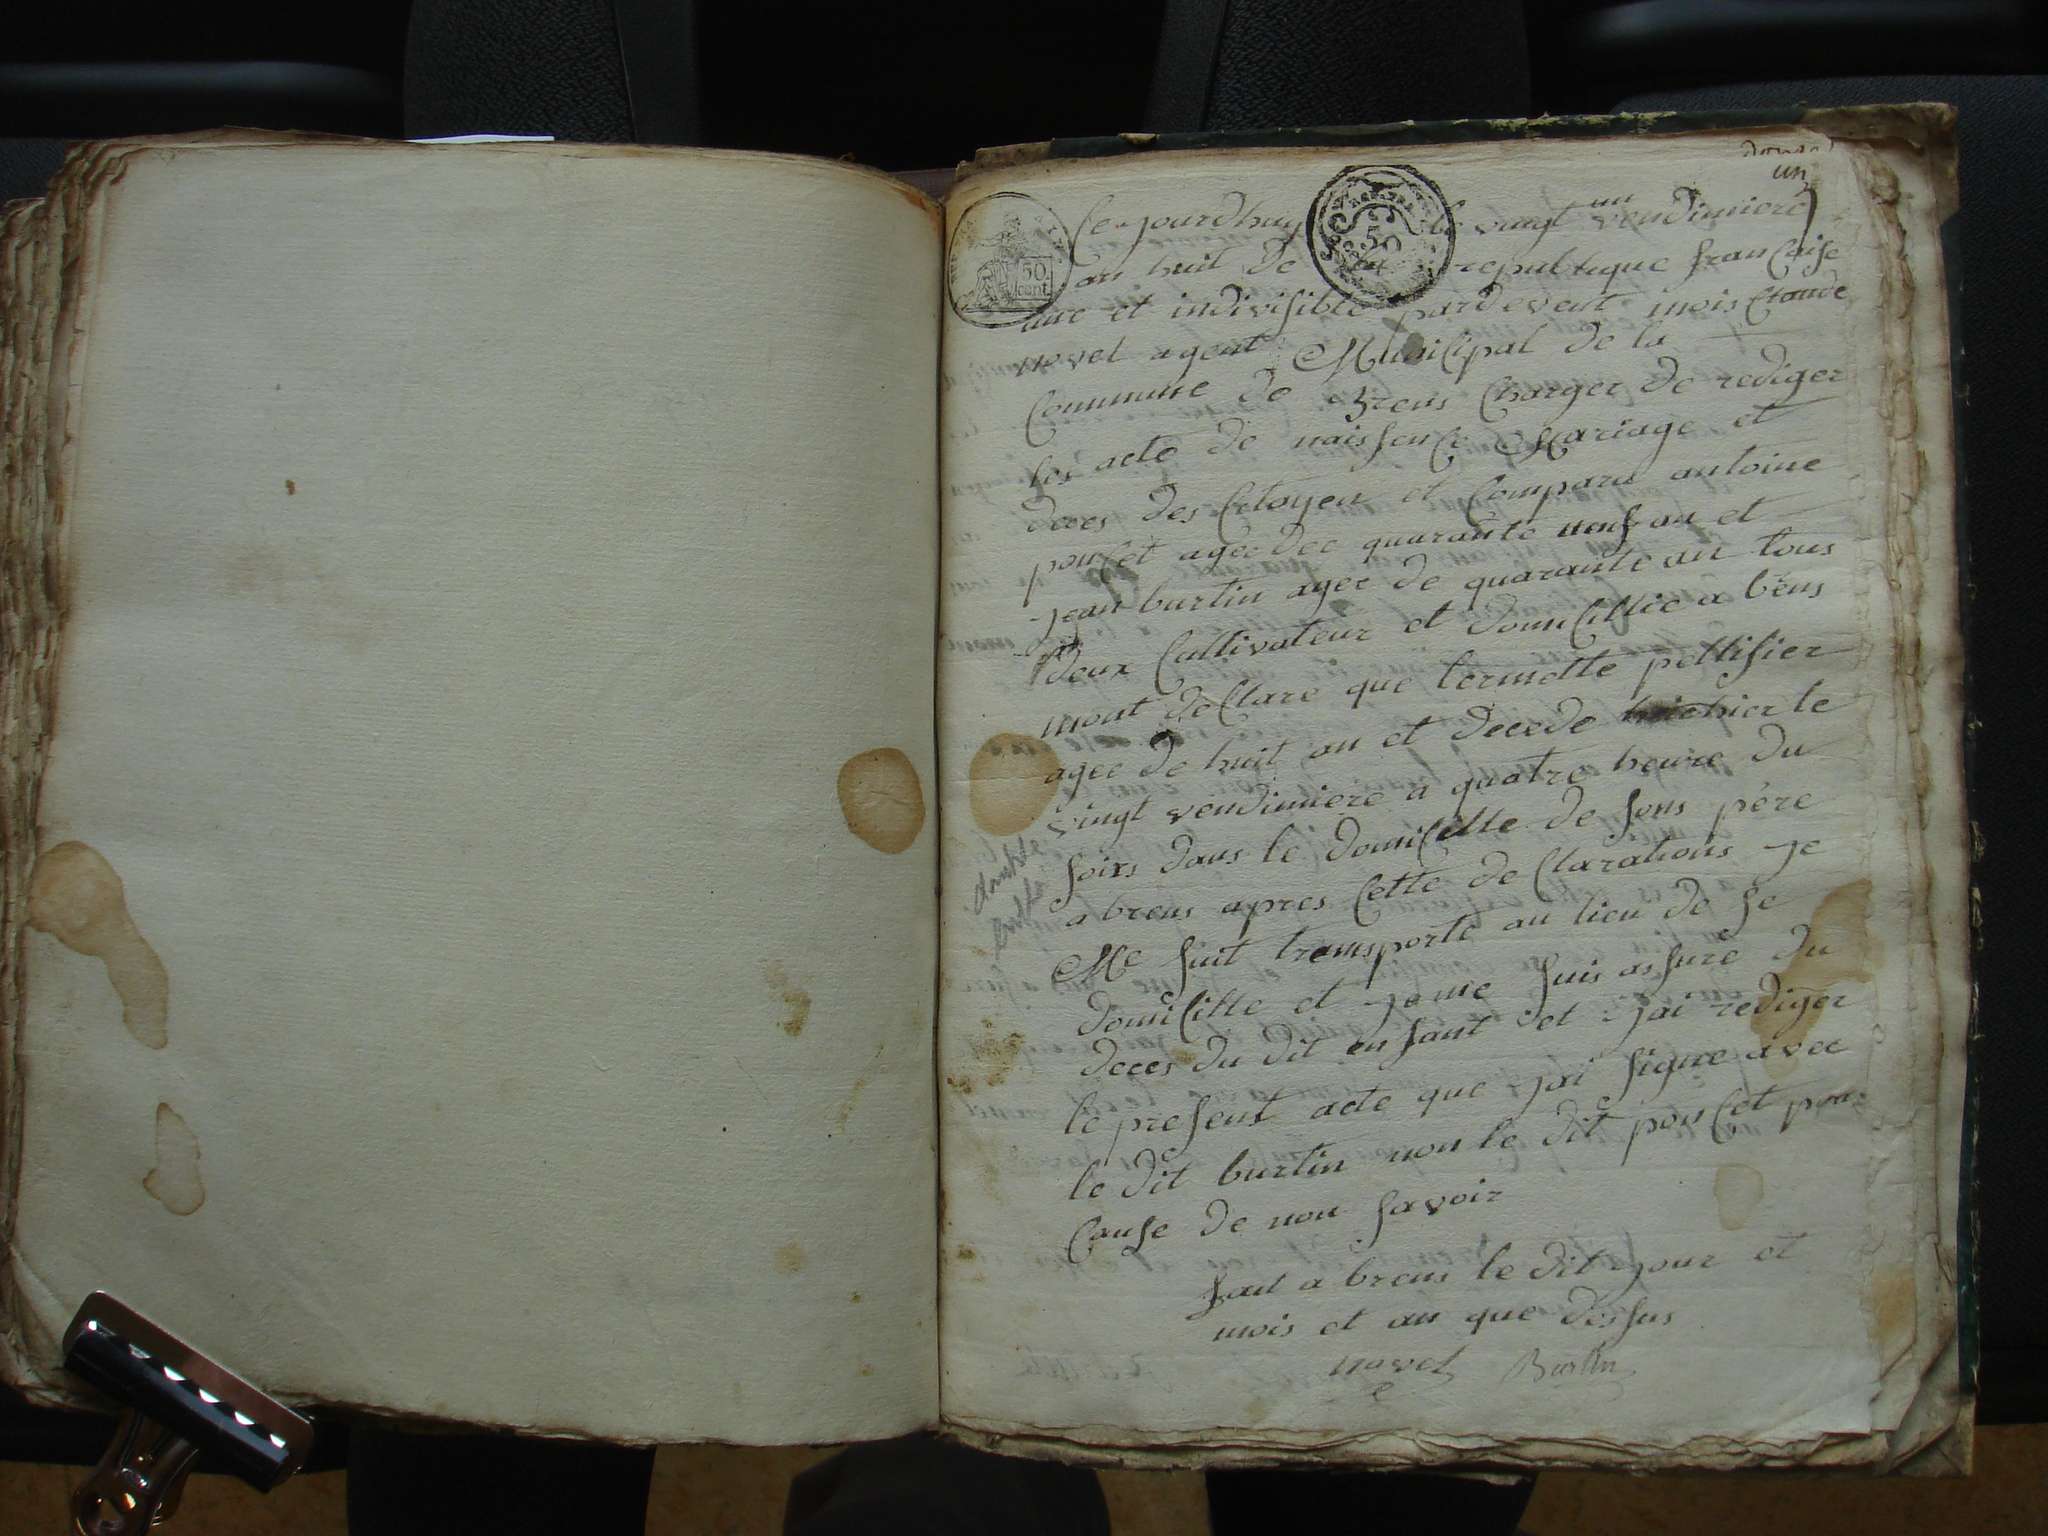 un
Ce jourdhuy le vingt un vendimiere
an huit de la republique francaise
une et indivisible pardevent mois Claude
novel agent Municipal de la
Commune de Brens Charger de rediger
les acte de naissence Mariage et
deces des Citoyen et Comparu antoine
poncet agee dee quarante neuf an et
jean burtin ager de quarante an tous
deux Cultivateur et domicillie a brens
mont declare que lermette pellisier
agee de huit an et decede hier le
vingt vendimiere a quatre heure du
soirs dans le domicille de sons père
a brens apres Cette declarations je
Me suit transporte au lieu de se
domicille et je me suis assure du
deces du dit enfant et jai rediger
le present acte que jai signe avec
le dit burtin non le dit poncet pour
Cause de non savoir
fait a brens le dit jour et
mois et an que dessus
novel Burtin
50
cent.
50
double